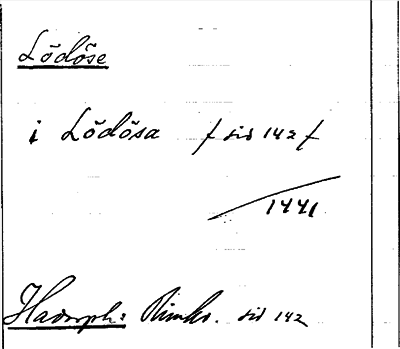 Lödöse
i Lödösa f sid 142 f
1441
Hadorph: Rimkr. sid 142